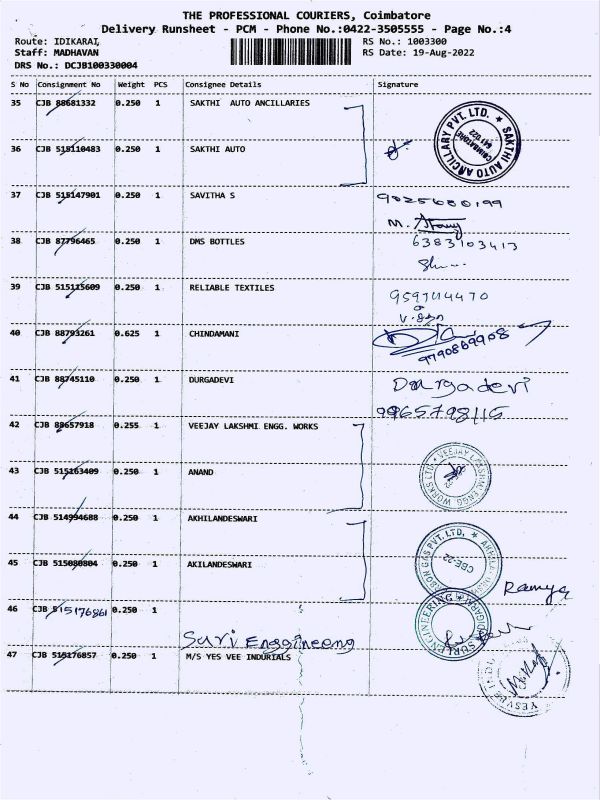 THE PROFESSIONAL COURIERS, Coimbatore
Delivery Runsheet - PCM - Phone No.:0422-3505555 - Page No.:4
Route: IDIKARAI, RS No.: 1003300
Staff: MADHAVAN RS Date: 19-Aug-2022
DRS No.: DCJB100330004
S No Consignment No Weight PCS Consignee Details Signature
35 CJB 88681332 0.250 1 SAKTHI AUTO ANCILLARIES
SAKTHI AUTO ANCILLARY PVT. LTD. COIMBATORE 641 022
36 CJB 515110483 0.250 1 SAKTHI AUTO
37 CJB 515147901 0.250 1 SAVITHA S 9025680199
38 CJB 87796465 0.250 1 DMS BOTTLES 6383103413
39 CJB 515115609 0.250 1 RELIABLE TEXTILES
40 CJB 88793261 0.625 1 CHINDAMANI
9790869908
41 CJB 88745110 0.250 1 DURGADEVI Durgadevi
9965798115
42 CJB 88657918 0.255 1 VEEJAY LAKSHMI ENGG. WORKS
VEEJAY LAKSHMI ENGG WORKS LTD
43 CJB 515163409 0.250 1 ANAND
44 CJB 514994688 0.250 1 AKHILANDESWARI
PVT. LTD. CBE-22
45 CJB 515080804 0.250 1 AKILANDESWARI
Ramya
46 CJB 515176861 0.250 1
Suri Enggineeng
SURI ENGINEERING
47 CJB 515176857 0.250 1 M/S YES VEE INDURIALS